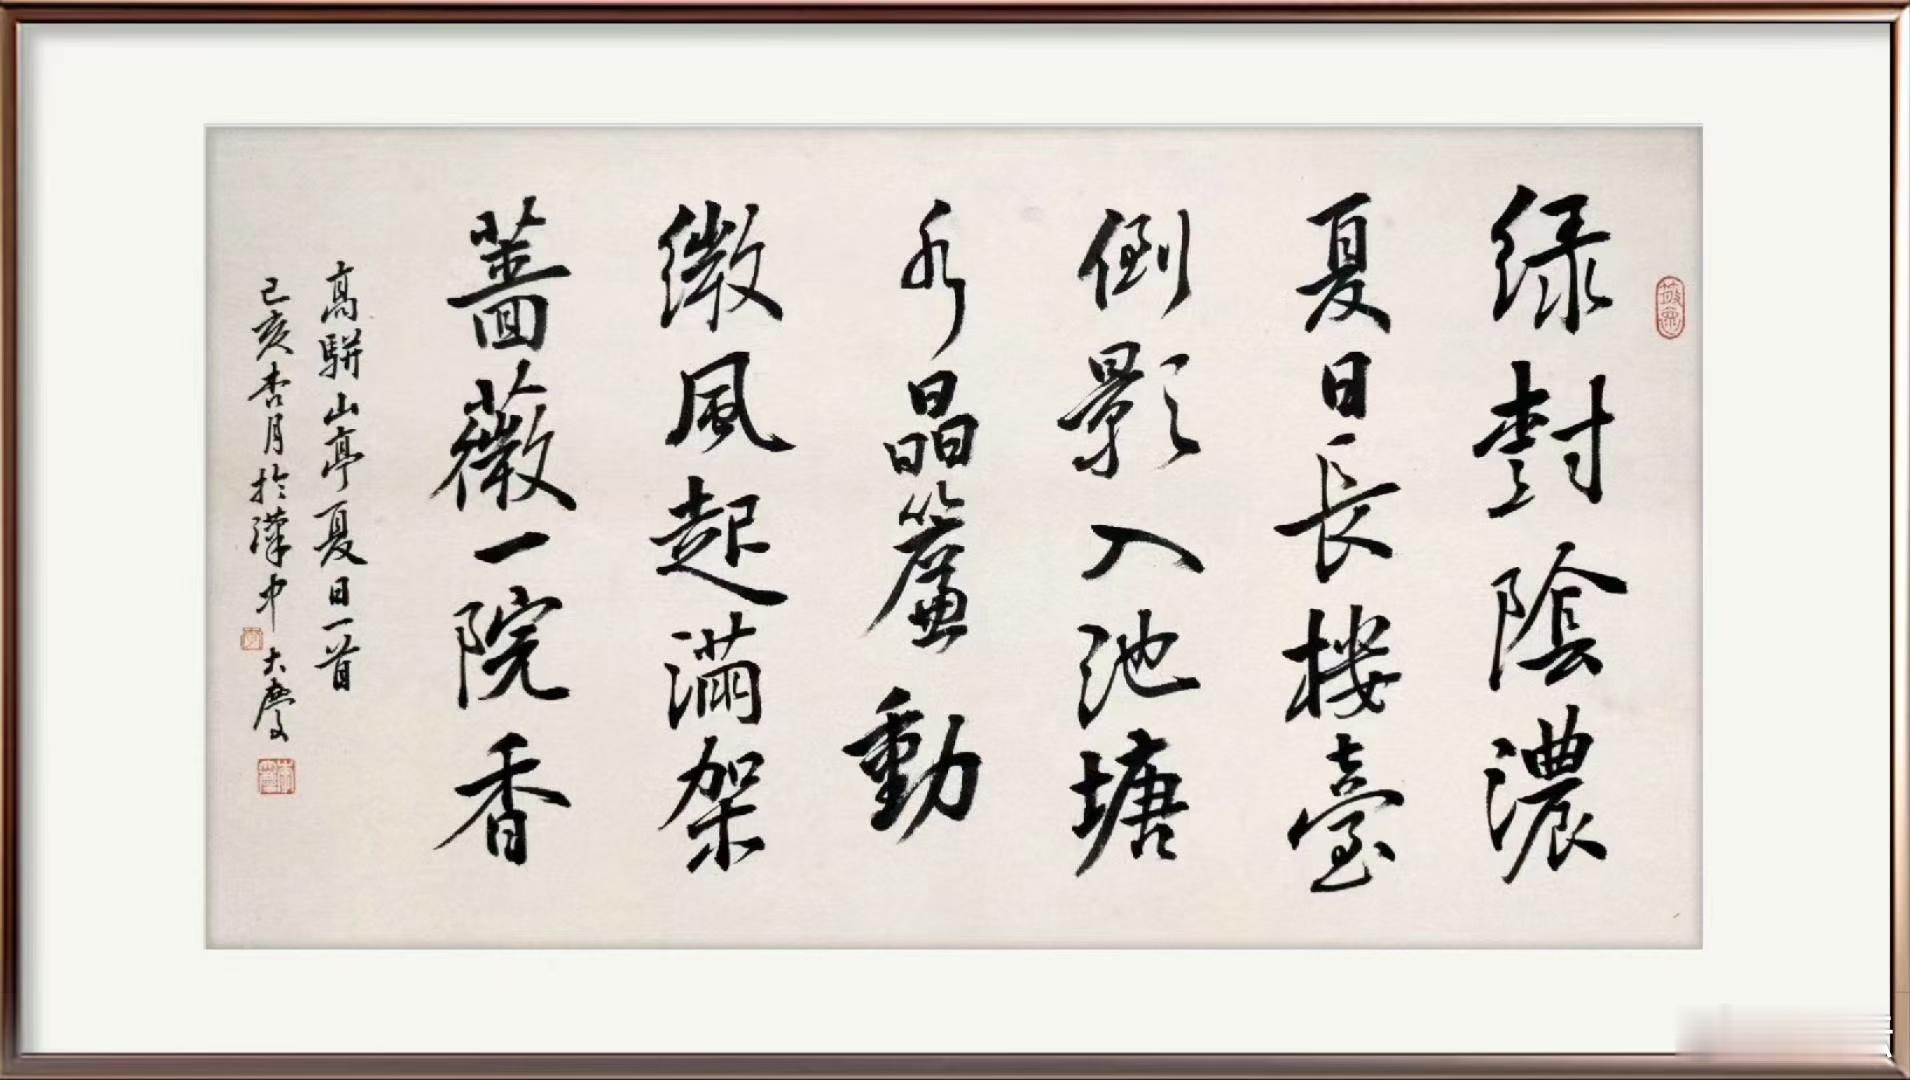 綠樹陰濃
夏日長樓臺
倒影入池塘
水晶簾動
微風起滿架
薔薇一院香
高駢山亭夏日一首
己亥杏月於漢中大慶